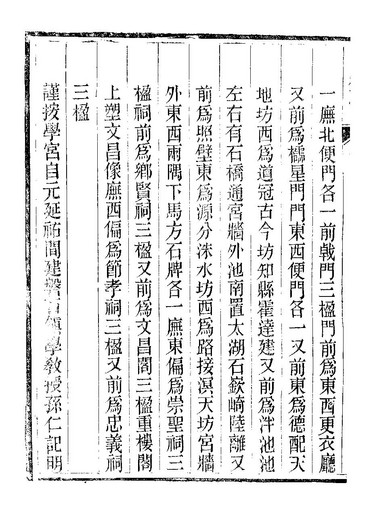 一廡北便門各一前戟門三楹門前爲東西更衣廳
又前爲櫺星門門東西便門各一又前東爲德配天
地坊西爲道冠古今坊知縣霍達建又前爲泮池池
左右有石橋通宮牆外池南置太湖石嶔崎陸離又
前爲照壁東爲源分洙水坊西爲路接淇天坊宮牆
外東西兩隅下馬方石牌各一廡東偏爲崇聖祠三
楹祠前爲鄉賢祠三楹又前爲文昌閣三楹重樓閣
上塑文昌像廡西偏爲節孝祠三楹又前爲忠義祠
三楹
謹按學宮自元延祐間建學教授孫仁記明